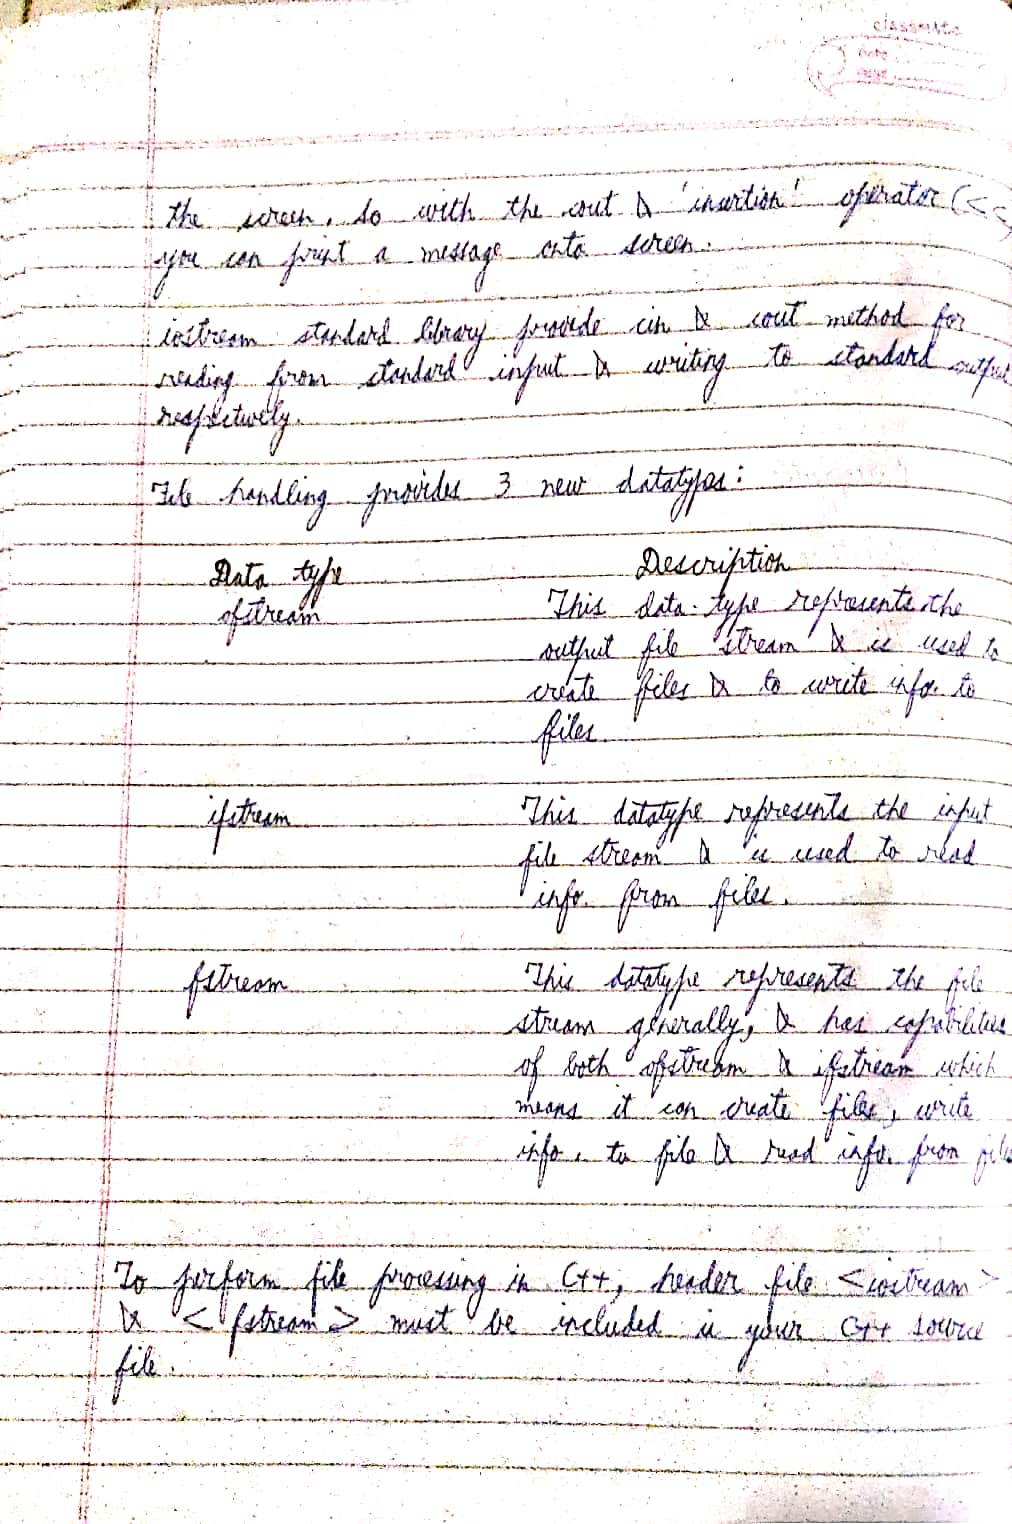 classmate
Date
Page
the screen. So with the cout & 'insertion' operator (<<
you can print a message onto screen.
iostream standard library provide cin & cout method for
reading from standard input & writing to standard output
respectively.
File handling provides 3 new datatypes:
Data type Description
ofstream This data-type represents the
output file stream & is used to
create files & to write info. to
files.
ifstream This datatype represents the input
file stream & is used to read
info. from files.
fstream This datatype represents the file
stream generally, & has capabilities
of both ofstream & ifstream which
means it can create files, write
info. to file & read info. from file
To perform file processing in C++, header file <iostream>
& <fstream> must be included in your C++ source
file.